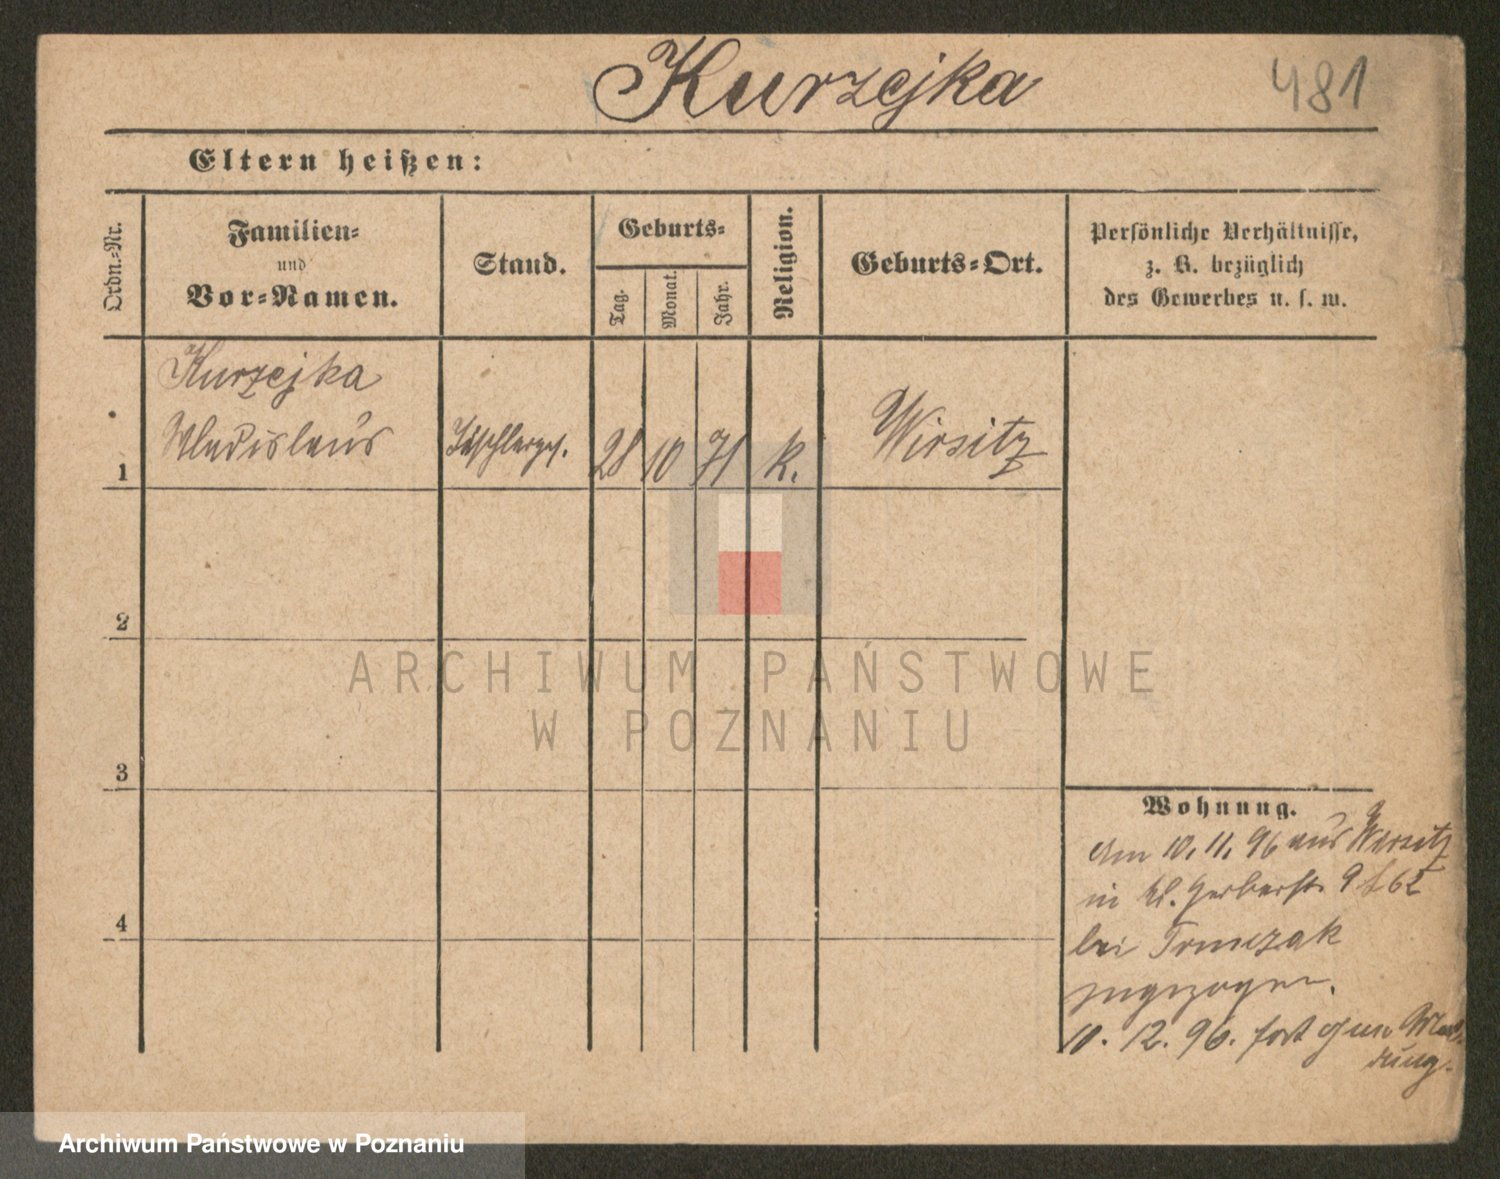 Kurzejka
481
Eltern heißen:
Ordn.-Nr.
Familien-
und
Vor-Namen.
Stand.
Geburts-
Tag.
Monat.
Jahr.
Religion.
Geburts-Ort.
Persönliche Verhältnisse,
z. B. bezüglich
des Gewerbes u. s. w.
Kurzejka
1 Wladislaus Tischlerges. 28 10 71 k. Wirsitz
2
3
4
ARCHIWUM PAŃSTWOWE
W POZNANIU
Wohnung.
Am 10. 11. 96 aus Wirsitz
in Kl. Gerberstr. 9 62
bei Tomczak
zugezogen.
10. 12. 96. fort ohne Mel-
dung.
Archiwum Państwowe w Poznaniu